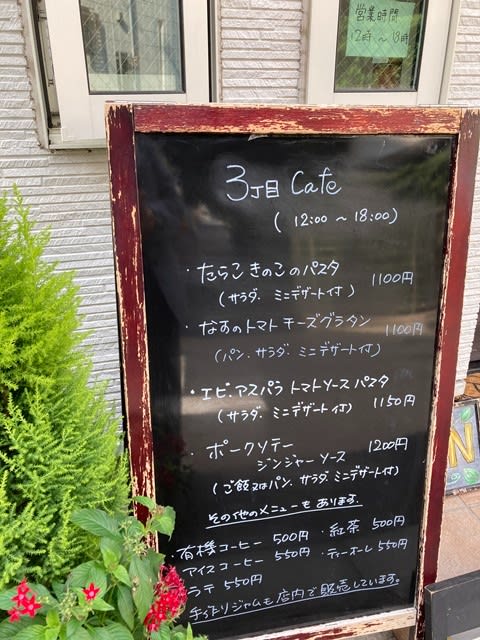 営業時間
12時〜18時
3丁目 Cafe
(12:00 〜 18:00)
・たらこ きのこのパスタ 1100円
(サラダ. ミニデザート付)
・なすのトマト チーズグラタン 1100円
(パン. サラダ. ミニデザート付)
・エビ.アスパラ トマトソース パスタ
(サラダ. ミニデザート付) 1150円
・ポークソテー 1200円
ジンジャーソース
(ご飯又はパン. サラダ. ミニデザート付)
その他のメニューもあります.
・有機コーヒー 500円 ・紅茶 500円
・アイスコーヒー 550円 ・ティーオーレ 550円
ラテ 550円
手作りジャムも店内で販売しています。
N